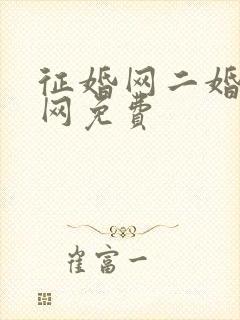 征婚网二婚
网免费
崔富一